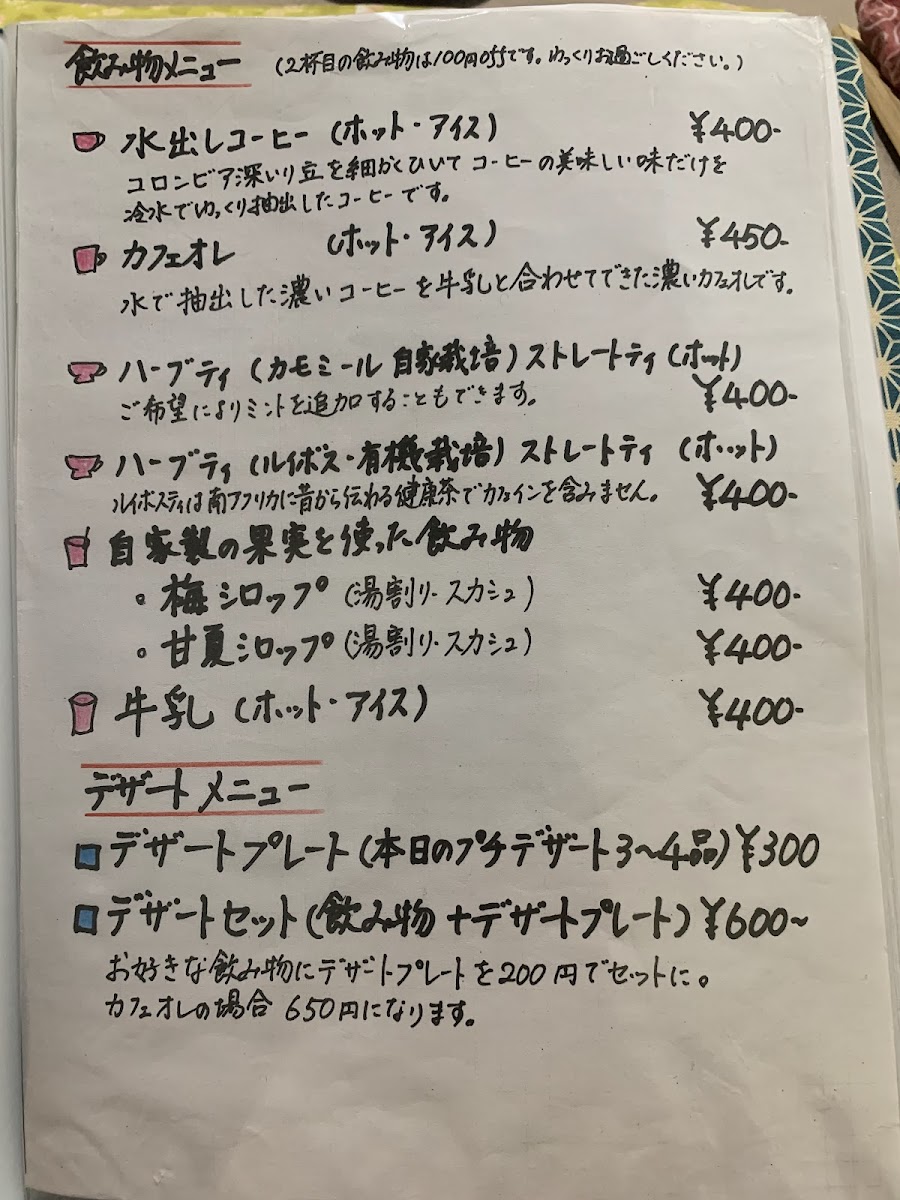 飲み物メニュー (2杯目の飲み物は100円offです。ゆっくりお過ごしください。)
水出しコーヒー (ホット・アイス) ¥400-
コロンビア深いり豆を細かくひいてコーヒーの美味しい味だけを
冷水でゆっくり抽出したコーヒーです。
カフェオレ (ホット・アイス) ¥450-
水で抽出した濃いコーヒーを牛乳と合わせてできた濃いカフェオレです。
ハーブティ (カモミール 自家栽培) ストレートティ (ホット)
ご希望によりミントを追加することもできます。 ¥400-
ハーブティ (ルイボス・有機栽培) ストレートティ (ホット)
ルイボスティは南アフリカに昔から伝わる健康茶でカフェインを含みません。 ¥400-
自家製の果実を使った飲み物
。梅シロップ (湯割り・スカシュ) ¥400-
。甘夏シロップ (湯割り・スカシュ) ¥400-
牛乳 (ホット・アイス) ¥400-
デザートメニュー
デザートプレート (本日のプチデザート3〜4品) ¥300
デザートセット (飲み物+デザートプレート) ¥600〜
お好きな飲み物にデザートプレートを200円でセットに。
カフェオレの場合 650円になります。